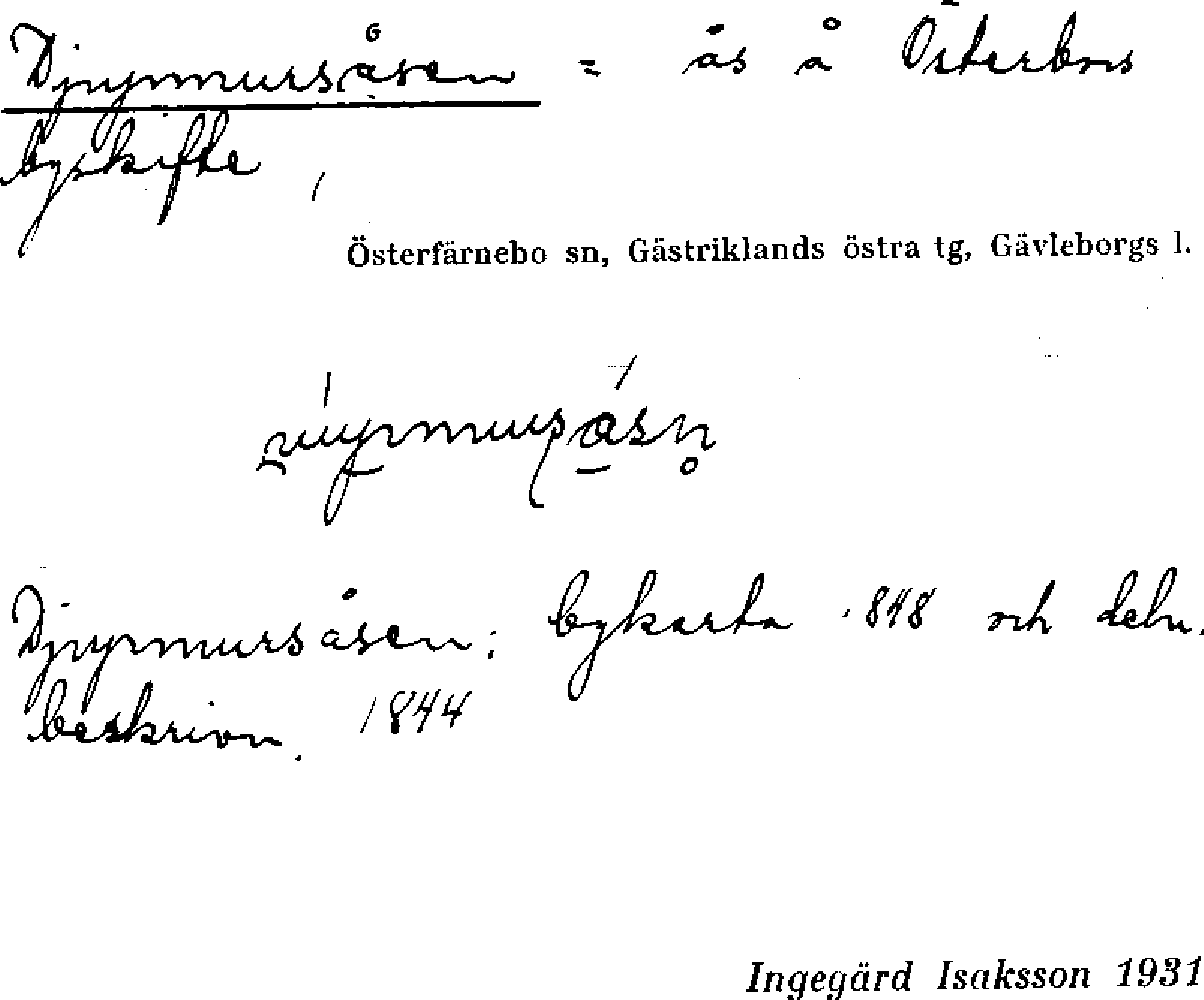 Djupmursåsen = ås å Österbos
byskifte,
Österfärnebo sn, Gästriklands östra tg, Gävleborgs l.
Djupmursåsen: bykarta 1848 och deln.
beskrivn. 1844
Ingegärd Isaksson 1931